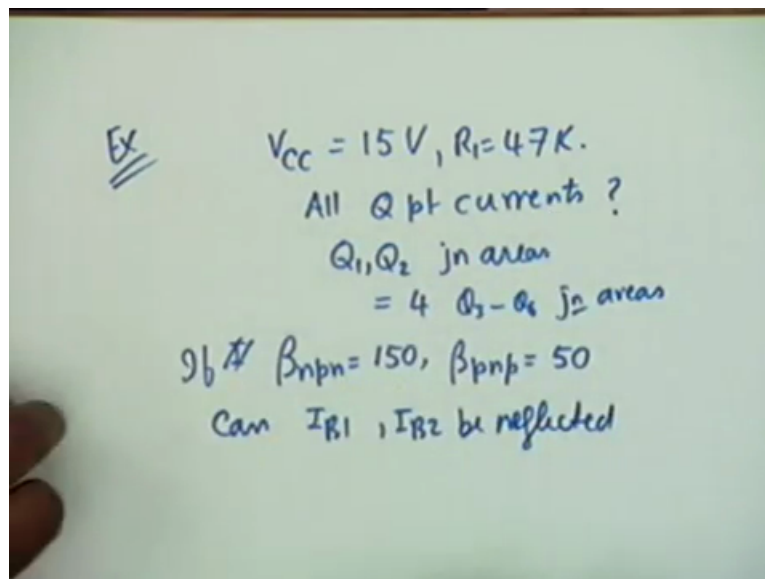 Ex V_CC = 15 V, R_1 = 47K.
All Q pt currents ?
Q_1, Q_2 jn areas
= 4 Q_3 - Q_6 jn areas
If β_npn = 150, β_pnp = 50
Can I_B1, I_B2 be neglected